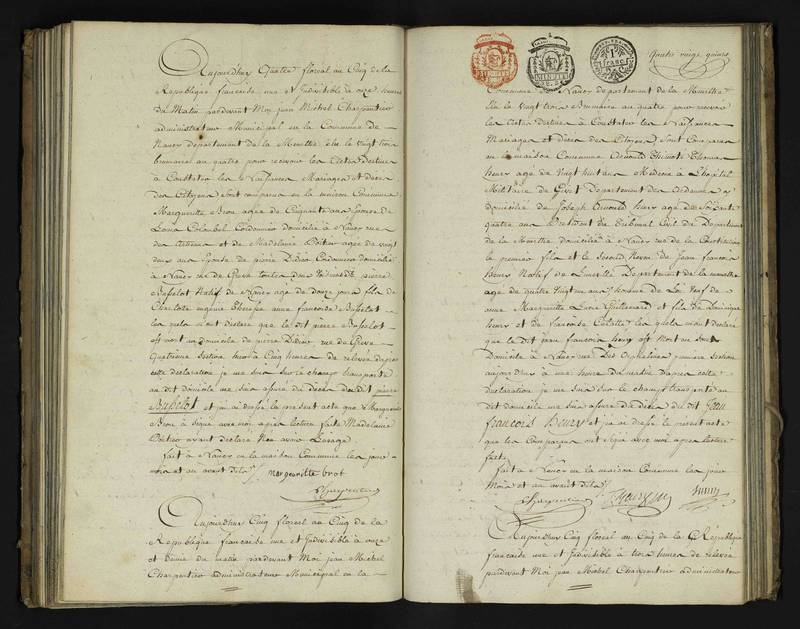 Aujourdhuy Quatre floreal au Cinq de la
Republique francaise une et Indivisible à onze heures
du Matin pardevant Moi jean Michel Charpentier
administrateur Municipal en la Commune de
Nancy departement de la Meurthe élu le vingt trois
brumaire an quatre pour recevoir les Actes destinés
à Constater les Naissances Mariages et décès
des Citoyens Sont comparus en la maison Commune
Margueritte Brou agée de Cinquante ans Epouse de
Louis Colombel Cordonnier domicilié à Nancy rue
des et de Madelaine Poitier agée de vingt
deux ans Epouse de pierre Didier Cordonnier domicilié
à Nancy rue de Greve toutes deux de pierre
Busselot Natif de Nancy agé de douze jours fils de
Charlotte eugenie Therese anne francoise Busselot
les quels m'ont déclaré que le dit pierre Busselot
est mort au domicile de pierre Didier rue de Greve
Quatrieme Section hier à Cinq heures de relevée d'apres
cette déclaration je me suis sur le champ transporté
au dit domicile me suis assuré du décès du dit pierre
Busselot et j'ai dressé le present acte que Margueritte
Brou a signé avec moi après lecture faite Madelaine
Poitier ayant declaré Non avoir L'usage
fait à Nancy en la maison Commune les jour
mois et an avant dits margueritte brot
Charpentier
Aujourdhuy Cinq floreal au Cinq de la
Republique francaise une et Indivisible à onze
et demie du matin pardevant Moi jean Michel
Charpentier administrateur Municipal en la
MINUTE
MINUTE
1 franc
Quatre vingt quinze
Commune de Nancy departement de la Meurthe
élu le vingt trois Brumaire an quatre pour recevoir
les Actes destinés à Constater les Naissances
Mariages et décès des Citoyens, sont Comparus
en la maison Commune Thomas
henry agé de vingt huit ans Medecin à L'hopital
Militaire de Givet Departement des Ardennes y
domicilié de Joseph henry agé de Soixante
quatre ans President du Tribunal Civil du Departement
de la Meurthe domicilié à Nancy rue de la Constitution
le premier fils et le Second Neveu de Jean francois
henry Natif de Luneville Departement de la meurthe
agé de quatre vingt un ans homme de Loi Veuf de
anne Margueritte Lucie Guillemard et fils de Dominique
henry et de francoise Colotte, les quels m'ont déclaré
que le dit jean francois henry est Mort en son
Domicile à Nancy rue Des Orphelines premiere Section
aujourdhuy à une heure du matin d'apres cette
déclaration je me suis sur le champ transporté au
dit domicile me suis assuré du décès du dit Jean
francois Henry et j'ai dressé le present acte
que les Comparans ont signé avec moi après lecture
faite
fait à Nancy en la maison Commune les jour
Mois et an avant dits
Charpentier Henry
Aujourdhuy Cinq floreal au Cinq de la République
francaise une et Indivisible à trois heures de relevée
pardevant Moi jean Michel Charpentier administrateur